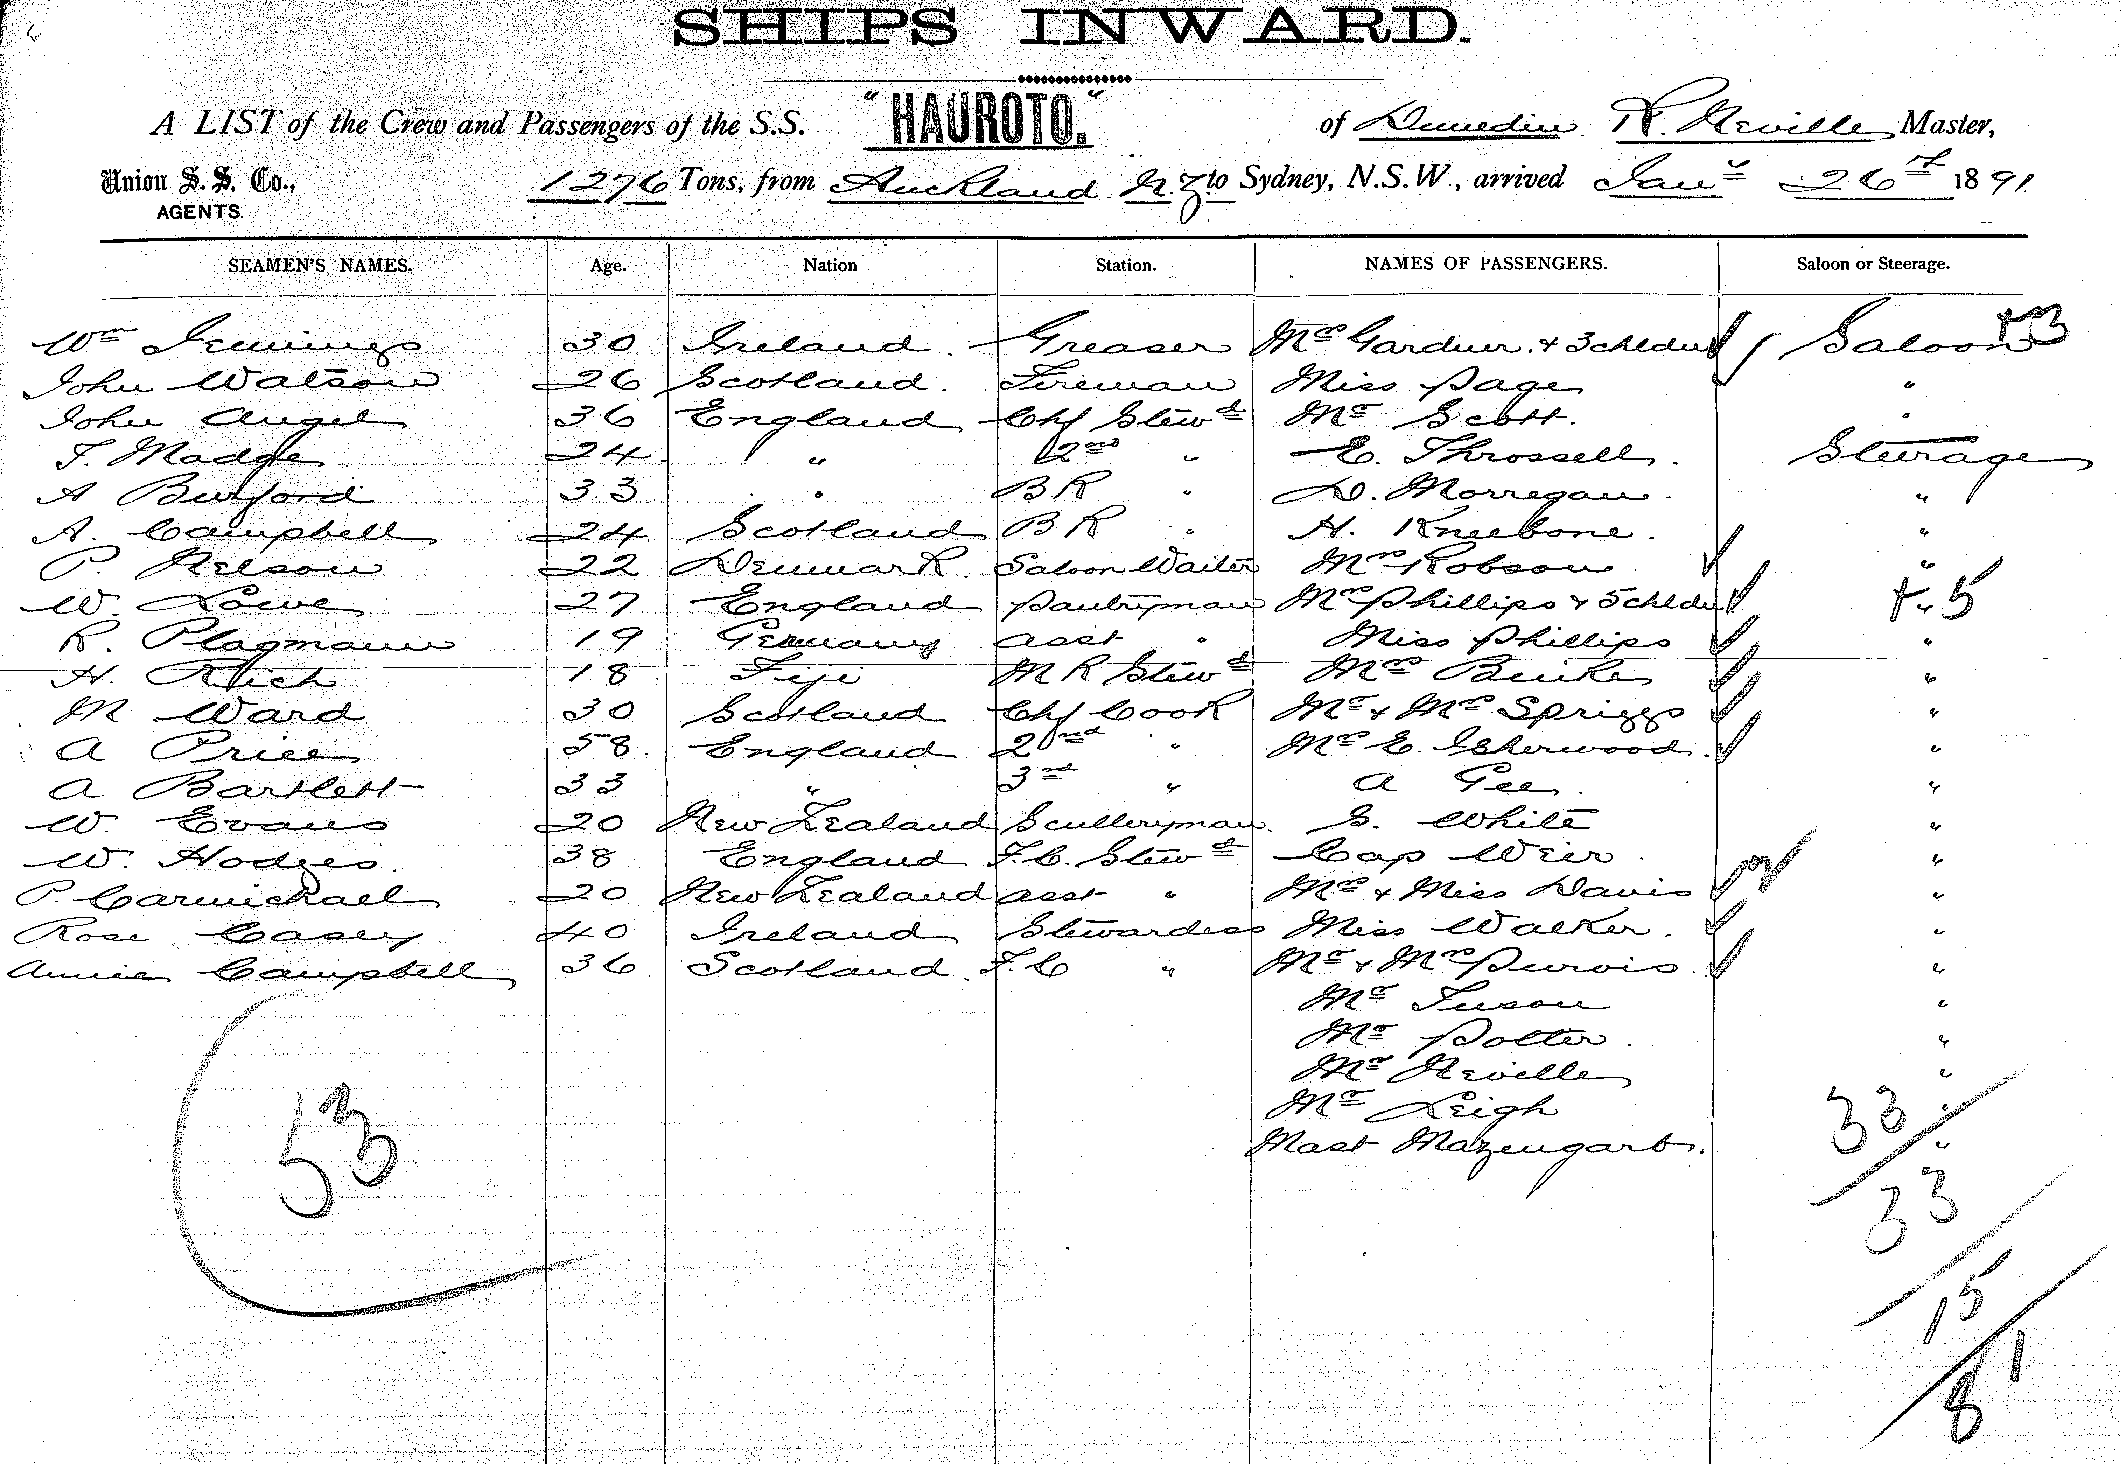 SHIPS INWARD.
A LIST of the Crew and Passengers of the S.S. "HAUROTO." of Dunedin R. Neville Master,
Union S. S. Co., AGENTS. 1276 Tons, from Auckland N.Z to Sydney, N.S.W., arrived Jany 26th 1891
SEAMEN'S NAMES. Age. Nation Station. NAMES OF PASSENGERS. Saloon or Steerage.
Wm Jennings 30 Ireland. Greaser Mrs Gardner. & 3 children Saloon +3
John Watson 26 Scotland. Fireman Miss Page "
John Angel 36 England Chf Stewd Mr Scott. "
F. Madge 24 " 2nd " E. Throssell. Steerage
A Burford 33 " B R " D. Morregan "
A. Campbell 24 Scotland B R " H. Kneebone. "
P. Nelson 22 Denmark. Saloon Waiter Mrs Robson "
W. Lowe 27 England Pantryman Mrs Phillips & 5 childn " + 5
R. Plagmann 19 Germany asst " Miss Phillips "
H. Reich 18 Fiji M R Stewd Mrs "
M Ward 30 Scotland Chf Cook Mr & Mrs Spriggs "
A Price 58. England 2nd " Mrs E. Isherwood. "
A Bartlett 33 " 3rd " A Gee. "
W. Evans 20 New Zealand Sculleryman. G. White "
W. Hodges. 38 England F.C. Stewd Cap Weir "
P. Carmichael 20 New Zealand asst " Mrs & Miss Davis 2 "
Rose Casey 40 Ireland Stewardess Miss Walker. "
Annie Campbell 36 Scotland. F.C " Mr & Mrs Purvis "
Mr Tuson "
Mr Potter. "
Mr Neville "
Mr Leigh "
Mast Mazengarb. "
53
33
33
15
81